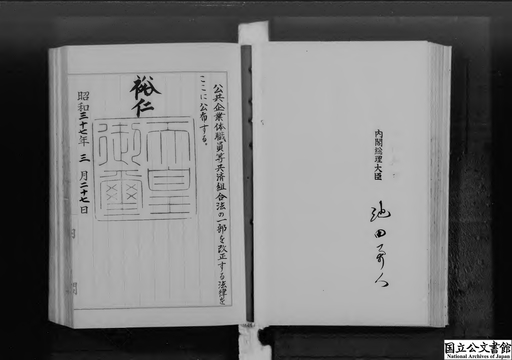 公共企業体職員等共済組合法の一部を改正する法律を
ここに公布する。
裕仁
天皇御璽
昭和三十七年三月二十七日
内閣総理大臣
池田勇人
国立公文書館
National Archives of Japan